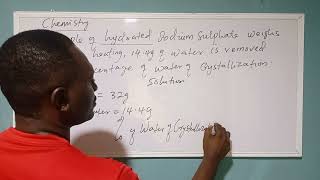 Chemistry
ple of hydrated Sodium Sulphate weighs
heating, 14.4g of water is removed
centage of water of Crystallization.
Solution
= 32g
ter = 14.4g
of Water of Crystalliza